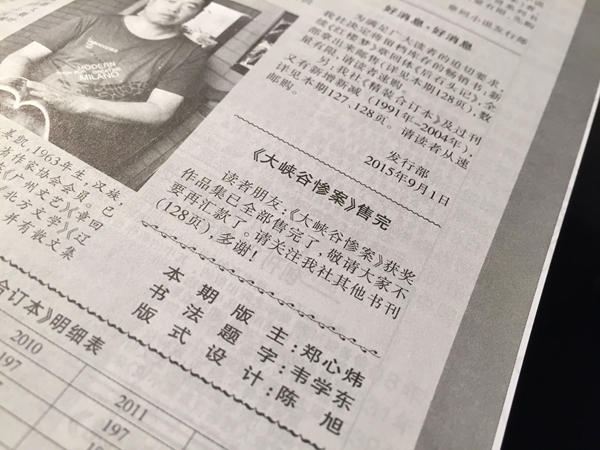 章回小说发行部
好消息·好消息
为满足广大读者的迫切要求，
我社决定将留档库存的畅销书，新
续《红楼梦》章回体《后石头记》，全
部拿出来邮售（详见本期128页），数
量有限，请读者速购。
另：我社《精装合订本》及过刊
又有新增新减（1991年-2004年），
详见本期127、128页。请读者从速
邮购。
发行部
2015年9月1日
《大峡谷惨案》售完
读者朋友：《大峡谷惨案》获奖
作品集已全部售完了，敬请大家不
要再汇款了。请关注我社其他书刊
（128页），多谢！
本期版主：郑心炜
书法题字：韦学东
版式设计：陈旭
MODERN
MILANO
基凯，1963年生，汉族，
作家协会会员。已
《广州文艺》《章回
《北方文学》《辽
并有散文集
合订本》明细表
2010
2011
197
197